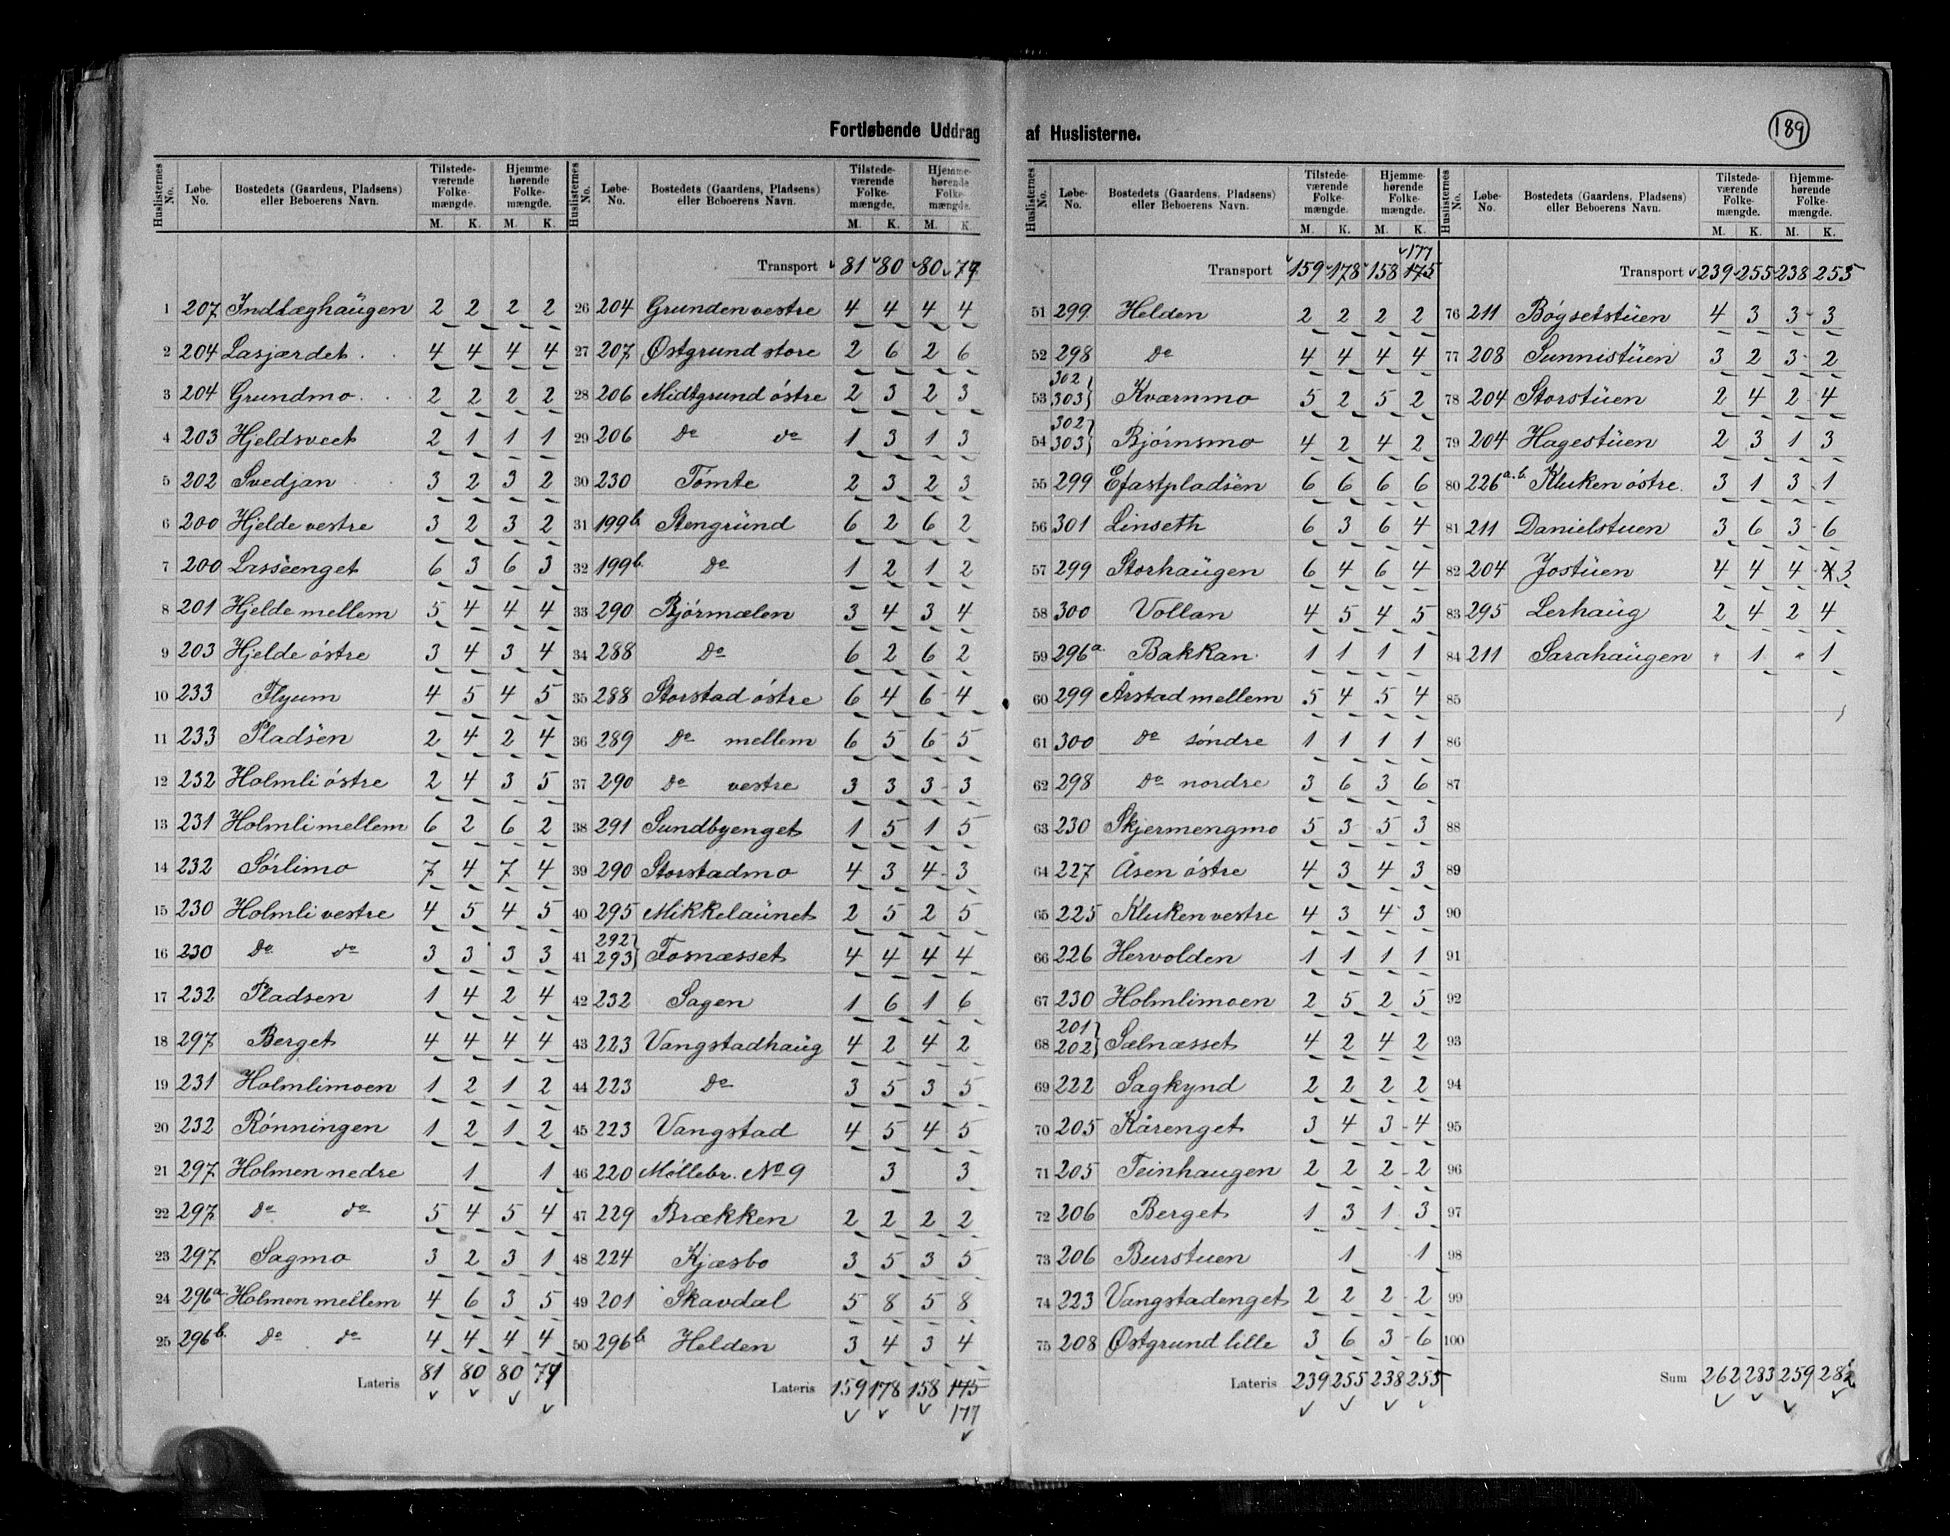 189
Fortløbende Uddrag af Huslisterne.
Huslisternes No. Løbe-No. Bostedets (Gaardens, Pladsen) eller Beboerens Navn. Tilstedeværende Folkemængde. M. K. Hjemmehørende Folkemængde. M. K.
1 207 Indlæghaugen 2 2 2 2
2 204 Lasjærdet 4 4 4 4
3 204 Grundmo 2 2 2 2
4 203 Hjeldsveet 2 1 1 1
5 202 Svedjan 3 2 3 2
6 200 Hjelde vestre 3 2 3 2
7 200 Lasseenget 6 3 6 3
8 201 Hjelde mellem 5 4 4 4
9 203 Hjelde østre 3 4 3 4
10 233 Flyum 4 5 4 5
11 233 Pladsen 2 4 2 4
12 232 Holmli østre 2 4 3 5
13 231 Holmli mellem 6 2 6 2
14 232 Sørlimo 7 4 7 4
15 230 Holmli vestre 4 5 4 5
16 230 do do 3 3 3 3
17 232 Pladsen 1 4 2 4
18 297 Berget 4 4 4 4
19 231 Holmlimoen 1 2 1 2
20 232 Rønningen 1 2 1 2
21 297 Holmen nedre 1 1
22 297 do do 5 4 5 4
23 297 Sagmo 3 2 3 1
24 296a Holmen mellem 4 6 3 5
25 296b. do do 4 4 4 4
Lateris 81 80 80 79
Huslisternes No. Løbe-No. Bostedets (Gaardens, Pladsen) eller Beboerens Navn. Tilstedeværende Folkemængde. M. K. Hjemmehørende Folkemængde. M. K.
Transport 81 80 80 79
26 204 Grunden vestre 4 4 4 4
27 207 Østgrund store 2 6 2 6
28 206 Midtgrund østre 2 3 2 3
29 206 do do 1 3 1 3
30 230 Tømte 2 3 2 3
31 199b Stengrund 6 2 6 2
32 199b. do 1 2 1 2
33 290 Bjørmælen 3 4 3 4
34 288 do 6 2 6 2
35 288 Storstad østre 6 4 6 4
36 289 do mellem 6 5 6 5
37 290 do vestre 3 3 3 3
38 291 Sundbyenget 1 5 1 5
39 290 Storstadmo 4 3 4 3
40 295 Mikkelaunet 2 5 2 5
41 292 293 Fosnæsset 4 4 4 4
42 232 Sagen 1 6 1 6
43 223 Vangstadhaug 4 2 4 2
44 223 do 3 5 3 5
45 223 Vangstad 4 5 4 5
46 220 Møllebr. No 9 3 3
47 229 Brækken 2 2 2 2
48 224 Kjæsbo 3 5 3 5
49 201 Skavdal 5 8 5 8
50 296b. Helden 3 4 3 4
Lateris 159 178 158 175
177
Huslisternes No. Løbe-No. Bostedets (Gaardens, Pladsen) eller Beboerens Navn. Tilstedeværende Folkemængde. M. K. Hjemmehørende Folkemængde. M. K.
177
Transport 159 178 158 175
51 299 Helden 2 2 2 2
52 298 do 4 4 4 4
53 302 303 Kværnmo 5 2 5 2
54 302 303 Bjørnsmo 4 2 4 2
55 299 Efastpladsen 6 6 6 6
56 301 Linseth 6 3 6 4
57 299 Storhaugen 6 4 6 4
58 300 Vollan 4 5 4 5
59 296a Bakkan 1 1 1 1
60 299 Årstad mellem 5 4 5 4
61 300 do søndre 1 1 1 1
62 298 do nordre 3 6 3 6
63 230 Skjermengmo 5 3 5 3
64 227 Åsen østre 4 3 4 3
65 225 Kluken vestre 4 3 4 3
66 226 Hervolden 1 1 1 1
67 230 Holmlimoen 2 5 2 5
68 201 202 Sælnæsset 4 2 4 2
69 222 Sagkynd 2 2 2 2
70 205 Kårenget 3 4 3 4
71 205 Teinhaugen 2 2 2 2
72 206 Berget 1 3 1 3
73 206 Burstuen 1 1
74 223 Vangstadenget 2 2 2 2
75 208 Østgrund lille 3 6 3 6
Lateris 239 255 238 255
Huslisternes No. Løbe-No. Bostedets (Gaardens, Pladsen) eller Beboerens Navn. Tilstedeværende Folkemængde. M. K. Hjemmehørende Folkemængde. M. K.
Transport 239 255 238 255
76 211 Bøgsetstuen 4 3 3 3
77 208 Sunnistuen 3 2 3 2
78 204 Storstuen 2 4 2 4
79 204 Hagestuen 2 3 1 3
80 226a.b. Kluken østre. 3 1 3 1
81 211 Danielstuen 3 6 3 6
82 204 Jostuen 4 4 4 4 3
83 295 Lerhaug 2 4 2 4
84 211 Sarahaugen " 1 " 1
85
86
87
88
89
90
91
92
93
94
95
96
97
98
99
100
Sum 262 283 259 282